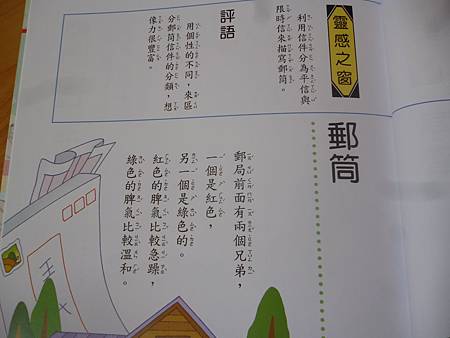 靈感之窗
利用信件分為平信與
限時信來描寫郵筒。
評語
用個性的不同，來區
分郵筒信件的分類，想
像力很豐富。
郵筒
郵局前面有兩個兄弟，
一個是紅色，
另一個是綠色的。
紅色的脾氣比較急躁，
綠色的脾氣比較溫和。
王